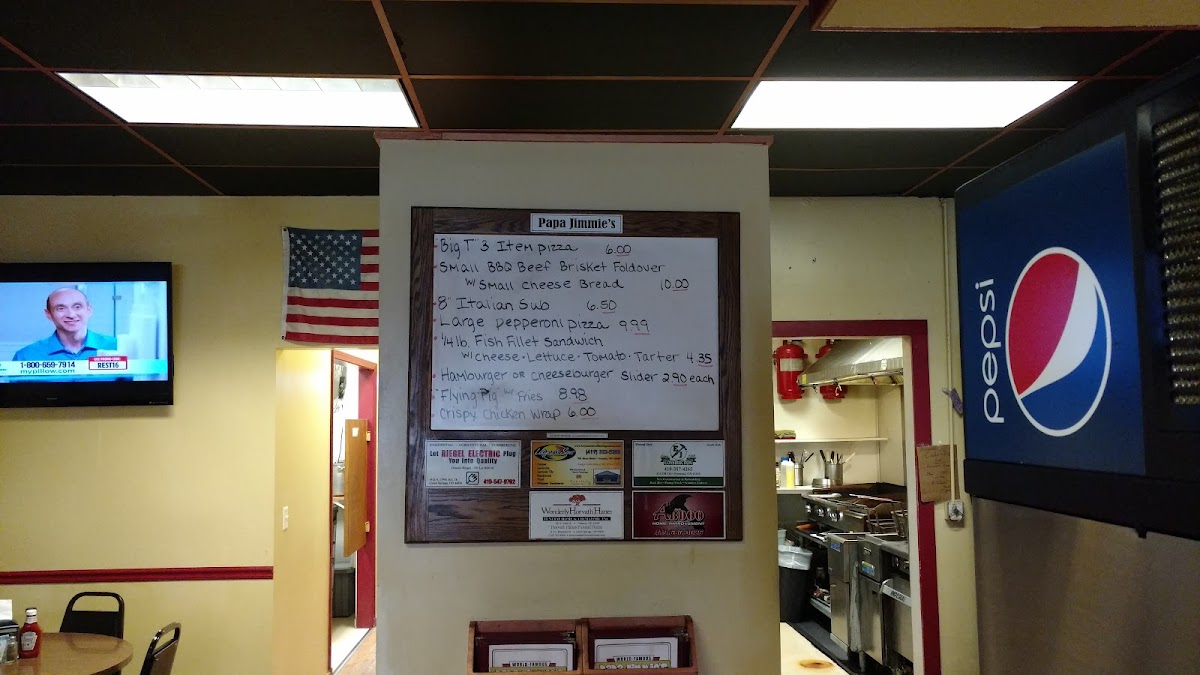 Papa Jimmie's
Big "T" 3 Item pizza 6.00
Small BBQ Beef Brisket Foldover
w/ Small Cheese Bread 10.00
8" Italian Sub 6.50
Large pepperoni pizza 9.99
1/4 lb. Fish Fillet Sandwich
w/ cheese · Lettuce · Tomato · Tarter 4.35
Hamburger or cheeseburger Slider 2.90 each
Flying Pig w/ Fries 8.98
Crispy Chicken Wrap 6.00
1-800-659-7914
REST16
mypillow.com
pepsi
Let RIEGEL ELECTRIC Plug
You Into Quality
419-547-9792
Wonderly Horvath Hanes
HOME IMPROVEMENT
WORLD FAMOUS
WORLD FAMOUS